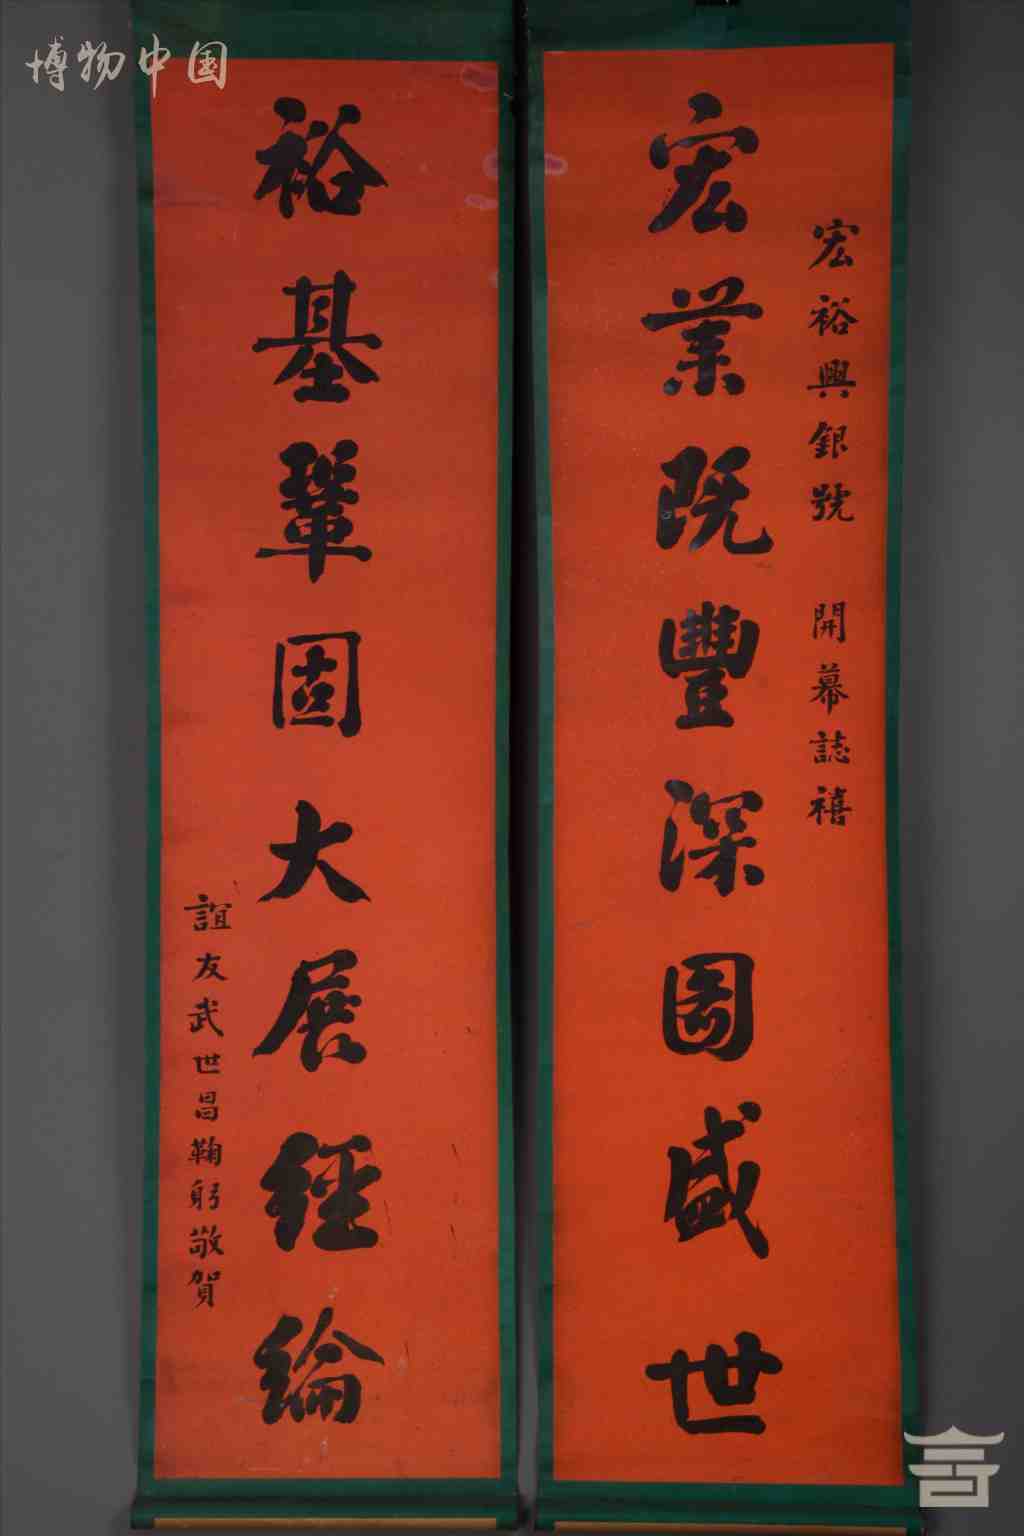 博物中国
宏裕興銀號 開幕誌禧
宏業既豐深圖盛世
裕基鞏固大展經綸
誼友武世昌鞠躬敬賀